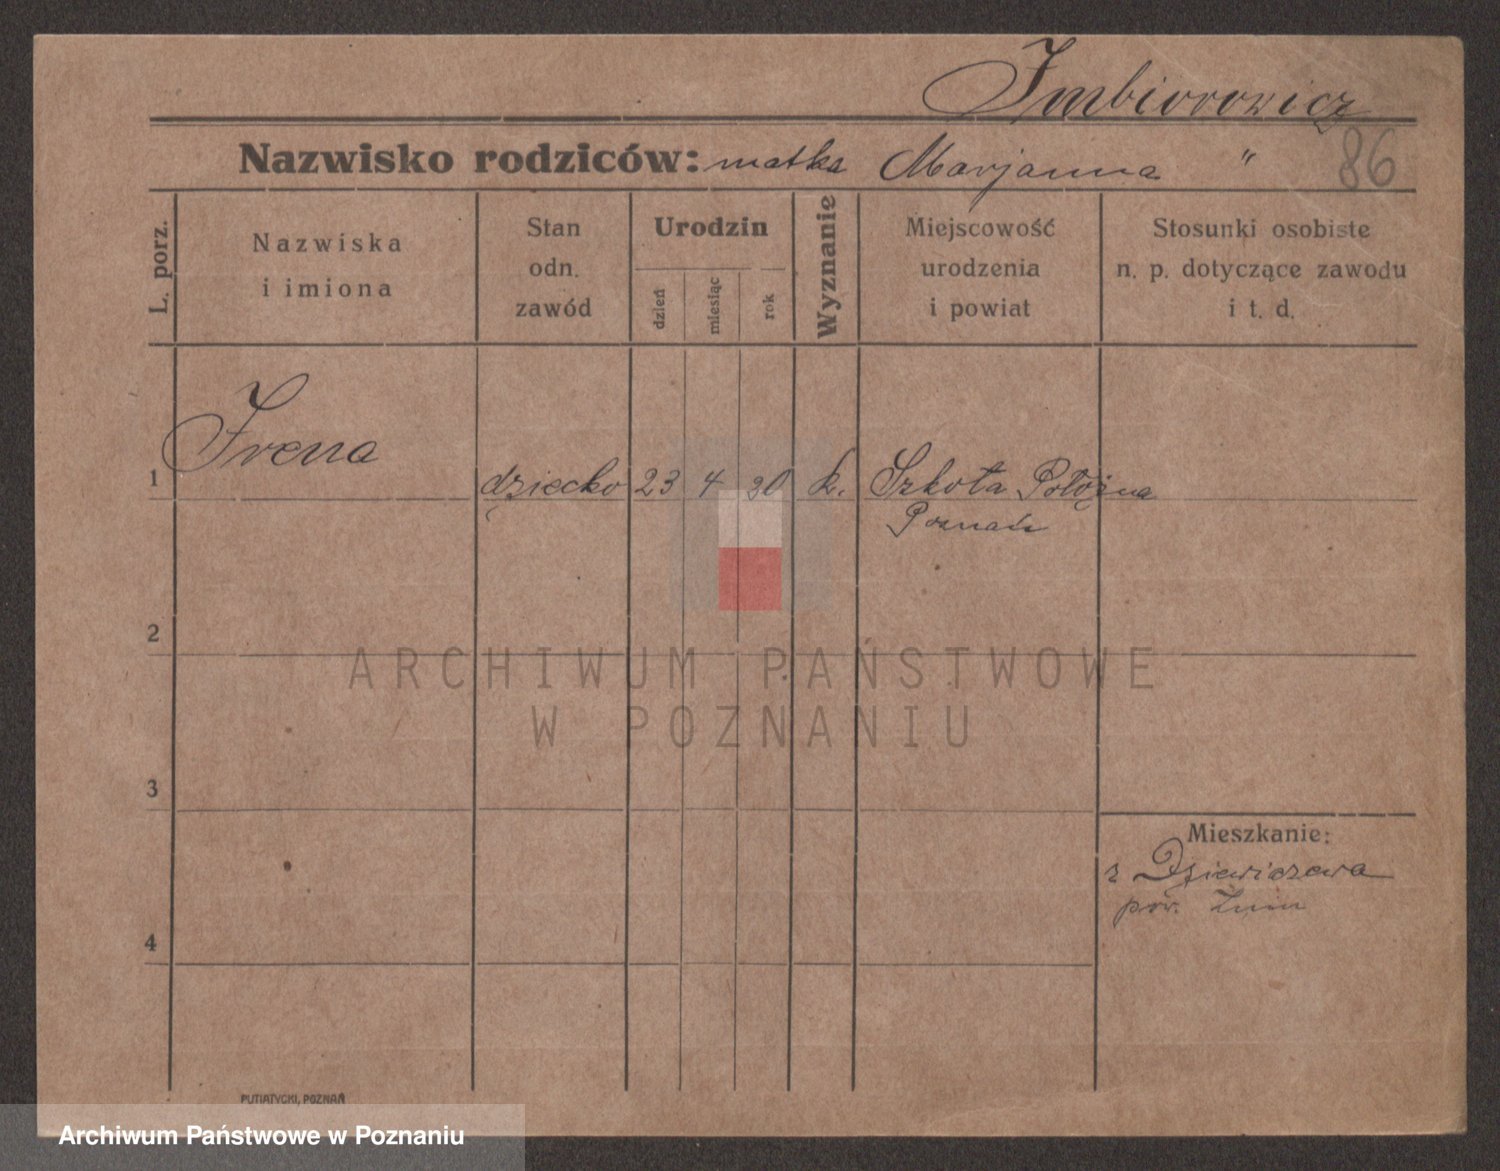 Imbiorowicz
Nazwisko rodziców: matka Marjanna "
86
L. porz.
Nazwiska
i imiona
Stan
odn.
zawód
Urodzin
dzień
miesiąc
rok
Wyznanie
Miejscowość
urodzenia
i powiat
Stosunki osobiste
n. p. dotyczące zawodu
i t. d.
Irena
1
dziecko 23 4 20 k. Szkoła Położna
Poznań
2
ARCHIWUM PAŃSTWOWE
W POZNANIU
3
Mieszkanie:
z Dziewiczewa
pow. Żnin
4
PUTIATYCKI, POZNAŃ
Archiwum Państwowe w Poznaniu